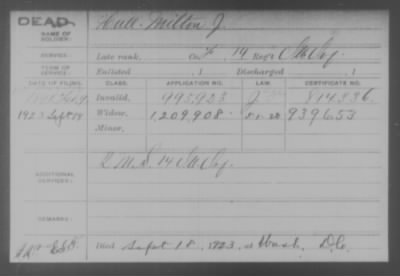 DEAD.
NAME OF SOLDIER: Hull Milton J.
SERVICE: Late rank, Co. 14 Reg't
TERM OF SERVICE: Enlisted , 1 Discharged , 1
DATE OF FILING. CLASS. APPLICATION NO. LAW. CERTIFICATE NO.
Invalid, 995,923 814336.
1923 Sept 29 Widow, 1,209,908. 939653
Minor,
ADDITIONAL SERVICES: 14
REMARKS:
Died Sept 18, 1923, at Wash. D.C.